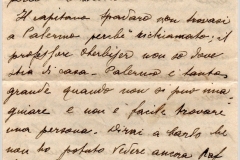 Il capitano Spadaro non trovasi
a Palermo perchè richiamato; il
professore non so dove
stia di casa. Palermo è tanto
grande quando non si può ma-
gnare e non è facile trovare
una persona. Dirai a
non ho potuto vedere ancora